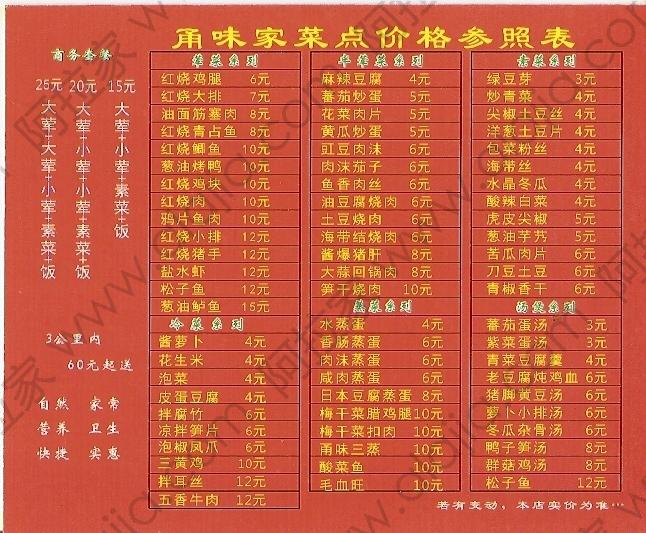 甬味家菜点价格参照表
商务套餐
25元 20元 15元
大荤+大荤+小荤+素菜+饭
大荤+小荤+小荤+素菜+饭
大荤+小荤+素菜+饭
3公里内
60元起送
自然 家常
营养 卫生
快捷 实惠
荤菜系列
红烧鸡腿 6元
红烧大排 7元
油面筋塞肉 8元
红烧青占鱼 8元
红烧鲫鱼 10元
葱油烤鸭 10元
红烧鸡块 10元
红烧肉 10元
鸦片鱼肉 10元
红烧小排 12元
红烧猪手 12元
盐水虾 12元
松子鱼 12元
葱油鲈鱼 15元
冷菜系列
酱萝卜 4元
花生米 4元
泡菜 4元
皮蛋豆腐 4元
拌腐竹 6元
凉拌笋片 6元
泡椒凤爪 6元
三黄鸡 10元
拌耳丝 12元
五香牛肉 12元
半荤系列
麻辣豆腐 4元
蕃茄炒蛋 5元
花菜肉片 5元
黄瓜炒蛋 5元
豇豆肉沫 6元
肉沫茄子 6元
鱼香肉丝 6元
油豆腐烧肉 6元
土豆烧肉 6元
海带结烧肉 6元
酱爆猪肝 8元
大蒜回锅肉 8元
笋干烧肉 10元
蒸菜系列
水蒸蛋 4元
香肠蒸蛋 6元
肉沫蒸蛋 6元
咸肉蒸蛋 6元
日本豆腐蒸蛋 8元
梅干菜腊鸡腿 10元
梅干菜扣肉 10元
甬味三蒸 10元
酸菜鱼 10元
毛血旺 10元
素菜系列
绿豆芽 3元
炒青菜 4元
尖椒土豆丝 4元
洋葱土豆片 4元
包菜粉丝 4元
海带丝 4元
水晶冬瓜 4元
酸辣白菜 4元
虎皮尖椒 5元
葱油芋艿 5元
苦瓜肉片 6元
刀豆土豆 6元
青椒香干 6元
汤煲系列
蕃茄蛋汤 3元
紫菜蛋汤 3元
青菜豆腐羹 4元
老豆腐炖鸡血 6元
猪脚黄豆汤 6元
萝卜小排汤 6元
冬瓜杂骨汤 6元
鸭子笋汤 8元
群菇鸡汤 8元
松子鱼 12元
若有变动，本店实价为准…
阿拉家 www.alajia.com